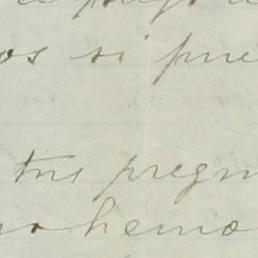 os si pue
tus pregn
no hemo